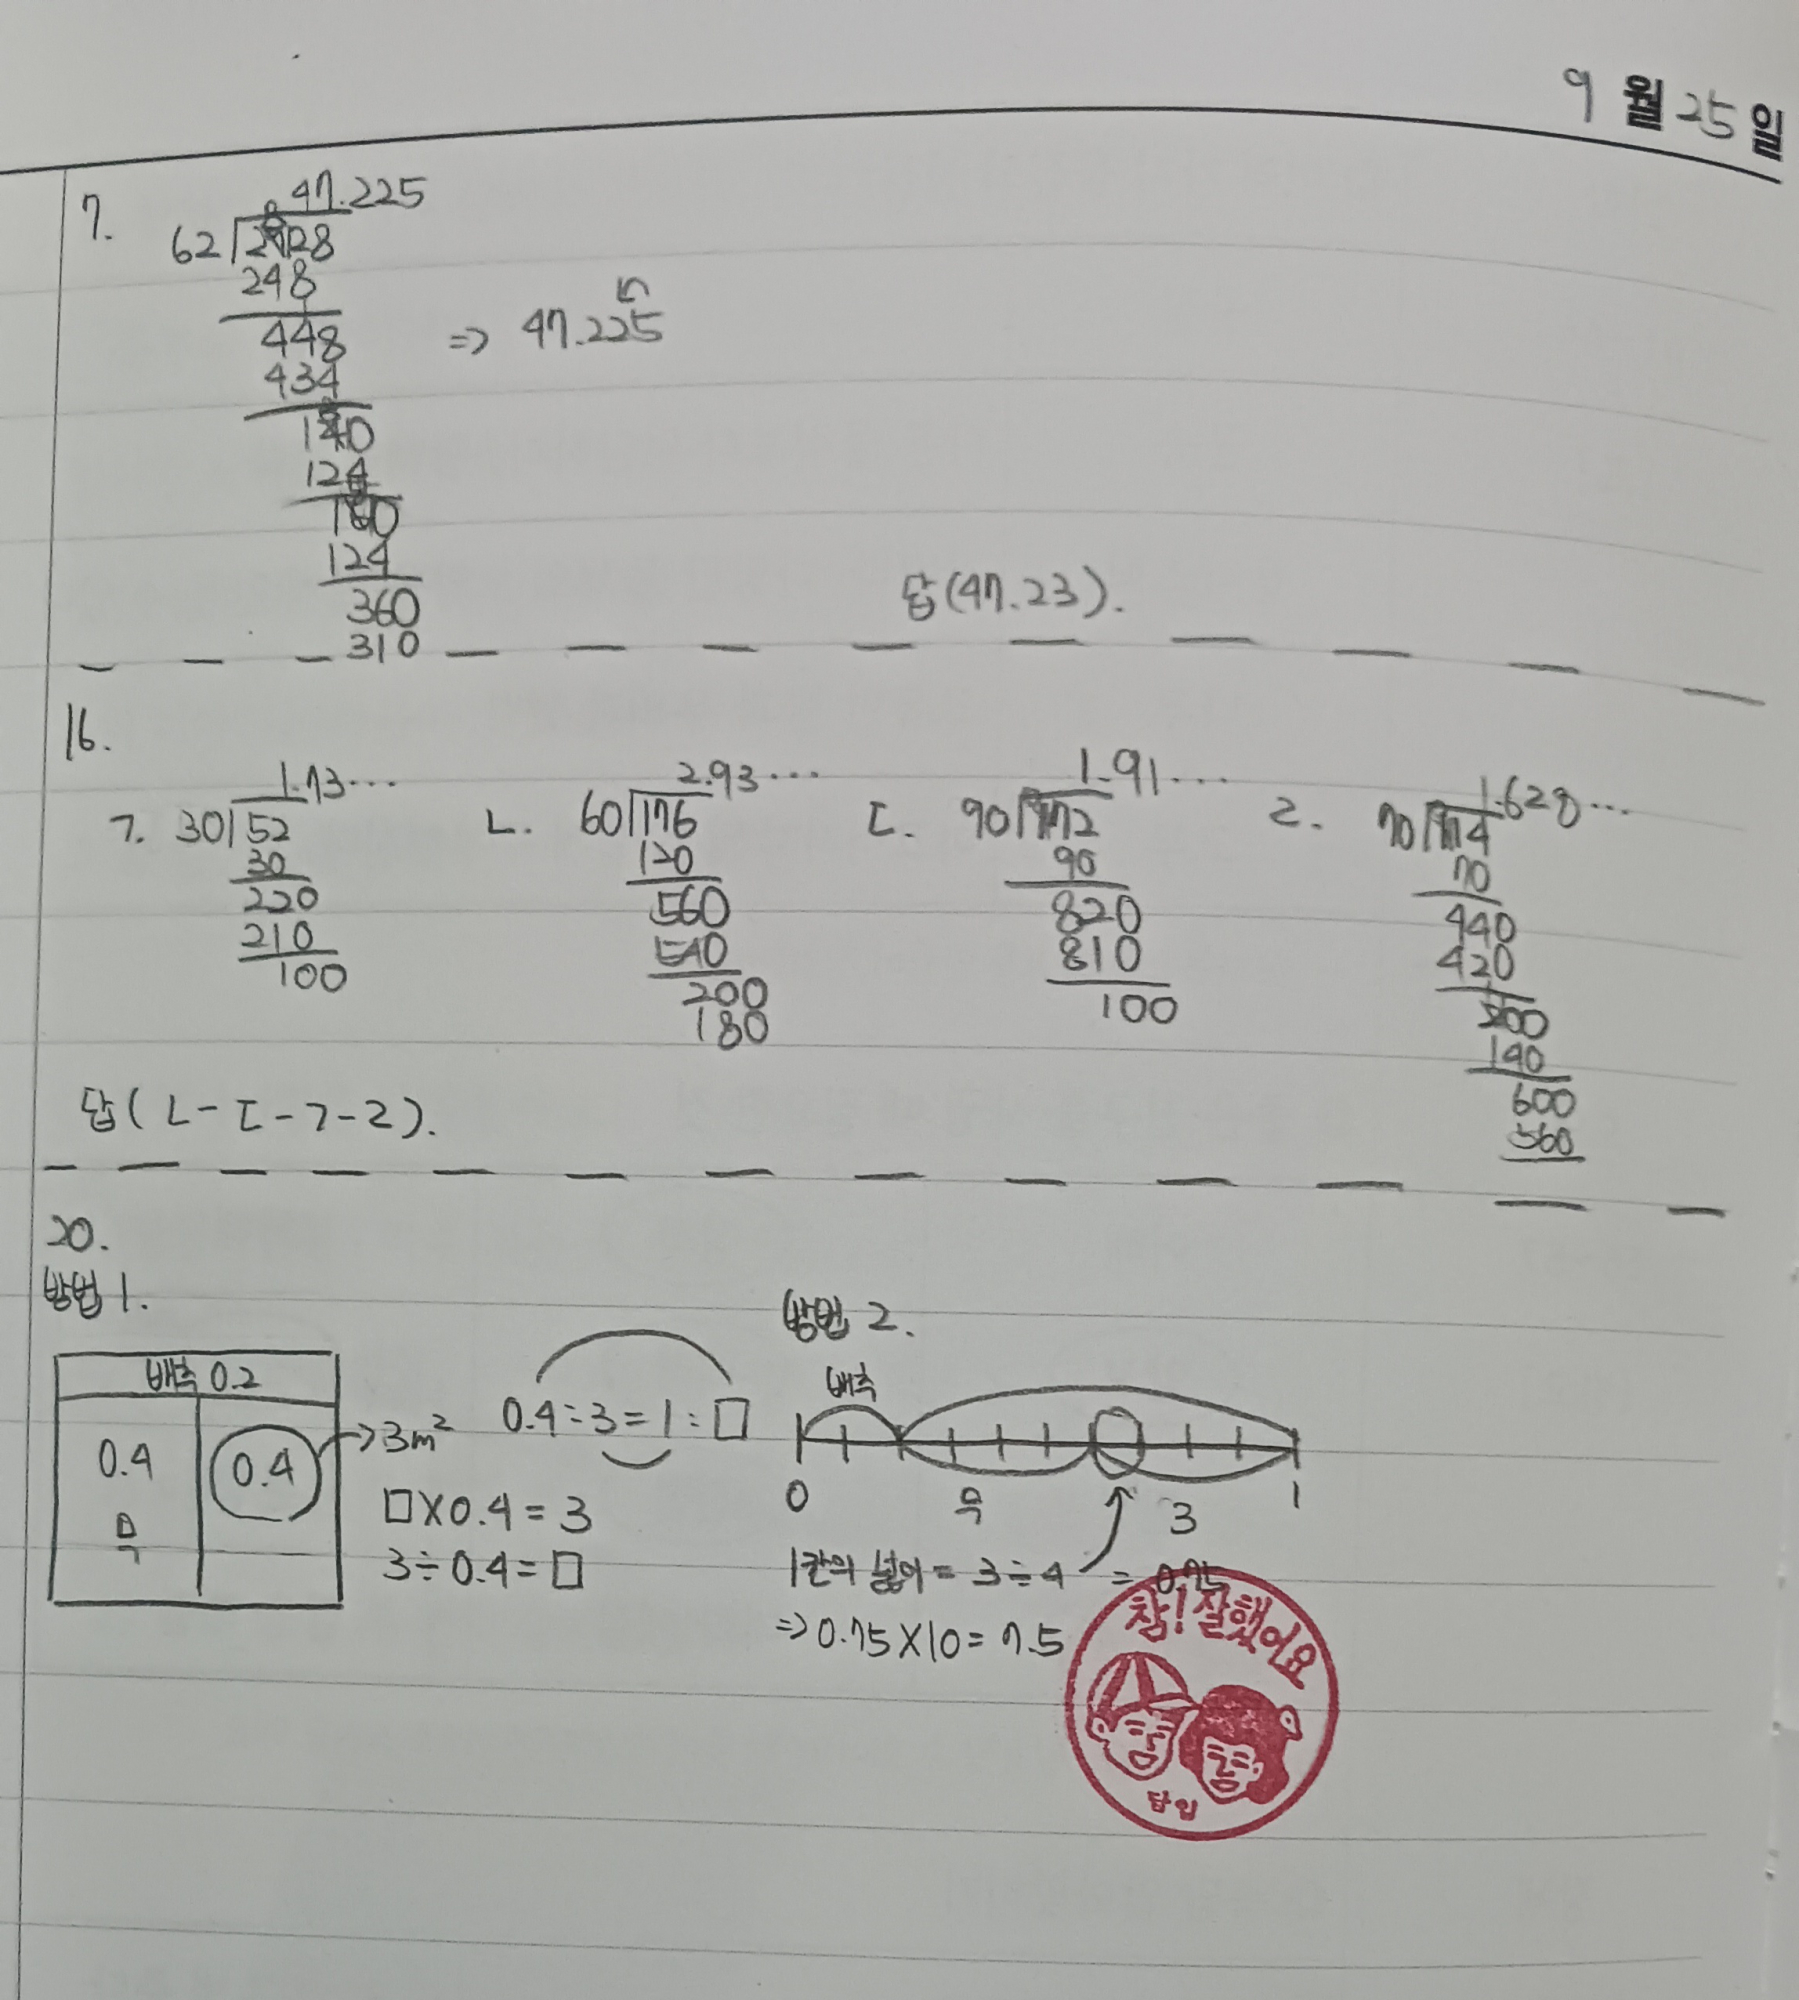 9월 25일
7.
47.225
62 2928
248
448
434
140
124
160
124
360
310
⇒ 47.225
답(47.23).
16.
ㄱ. 1.73…
30 52
30
220
210
100
ㄴ. 2.93…
60 176
120
560
540
200
180
ㄷ. 1.91…
90 172
90
820
810
100
ㄹ. 1.628…
70 114
70
440
420
200
140
600
560
답(ㄴ-ㄷ-ㄱ-ㄹ).
20.
방법 1.
배추 0.2
0.4
무
0.4 → 3m²
0.4:3=1:□
□×0.4=3
3÷0.4=□
방법 2.
배추
0 무 3 1
1칸의 넓이=3÷4 = 0.75
⇒ 0.75×10=7.5
참! 잘했어요
담임